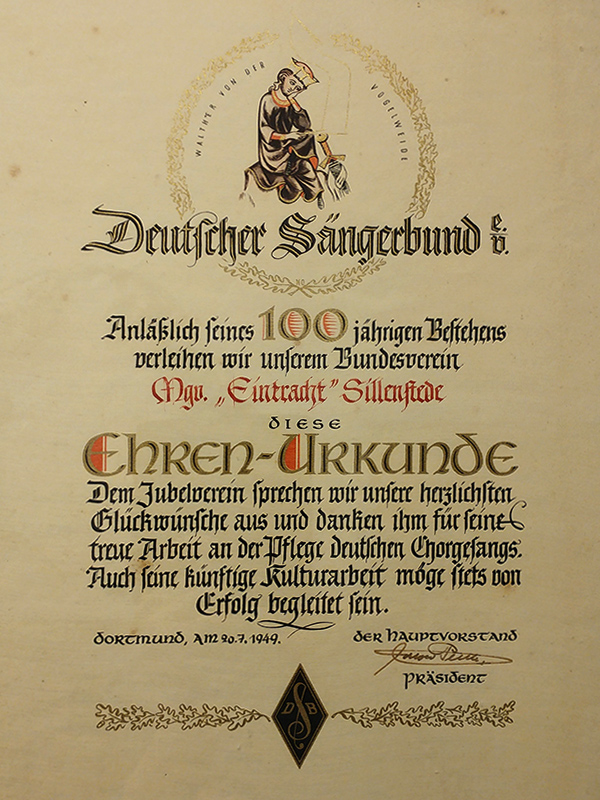 WALTHER VON DER VOGELWEIDE
Deutscher Sängerbund e.V.
Anläßlich seines 100 jährigen Bestehens
verleihen wir unserem Bundesverein
Mgv. „Eintracht" Sillenstede
DIESE
EHREN-URKUNDE
Dem Jubelverein sprechen wir unsere herzlichsten
Glückwünsche aus und danken ihm für seine
treue Arbeit an der Pflege deutschen Chorgesangs.
Auch seine künftige Kulturarbeit möge stets von
Erfolg begleitet sein.
DORTMUND, AM 20.7.1949.
DER HAUPTVORSTAND
PRÄSIDENT
DSB